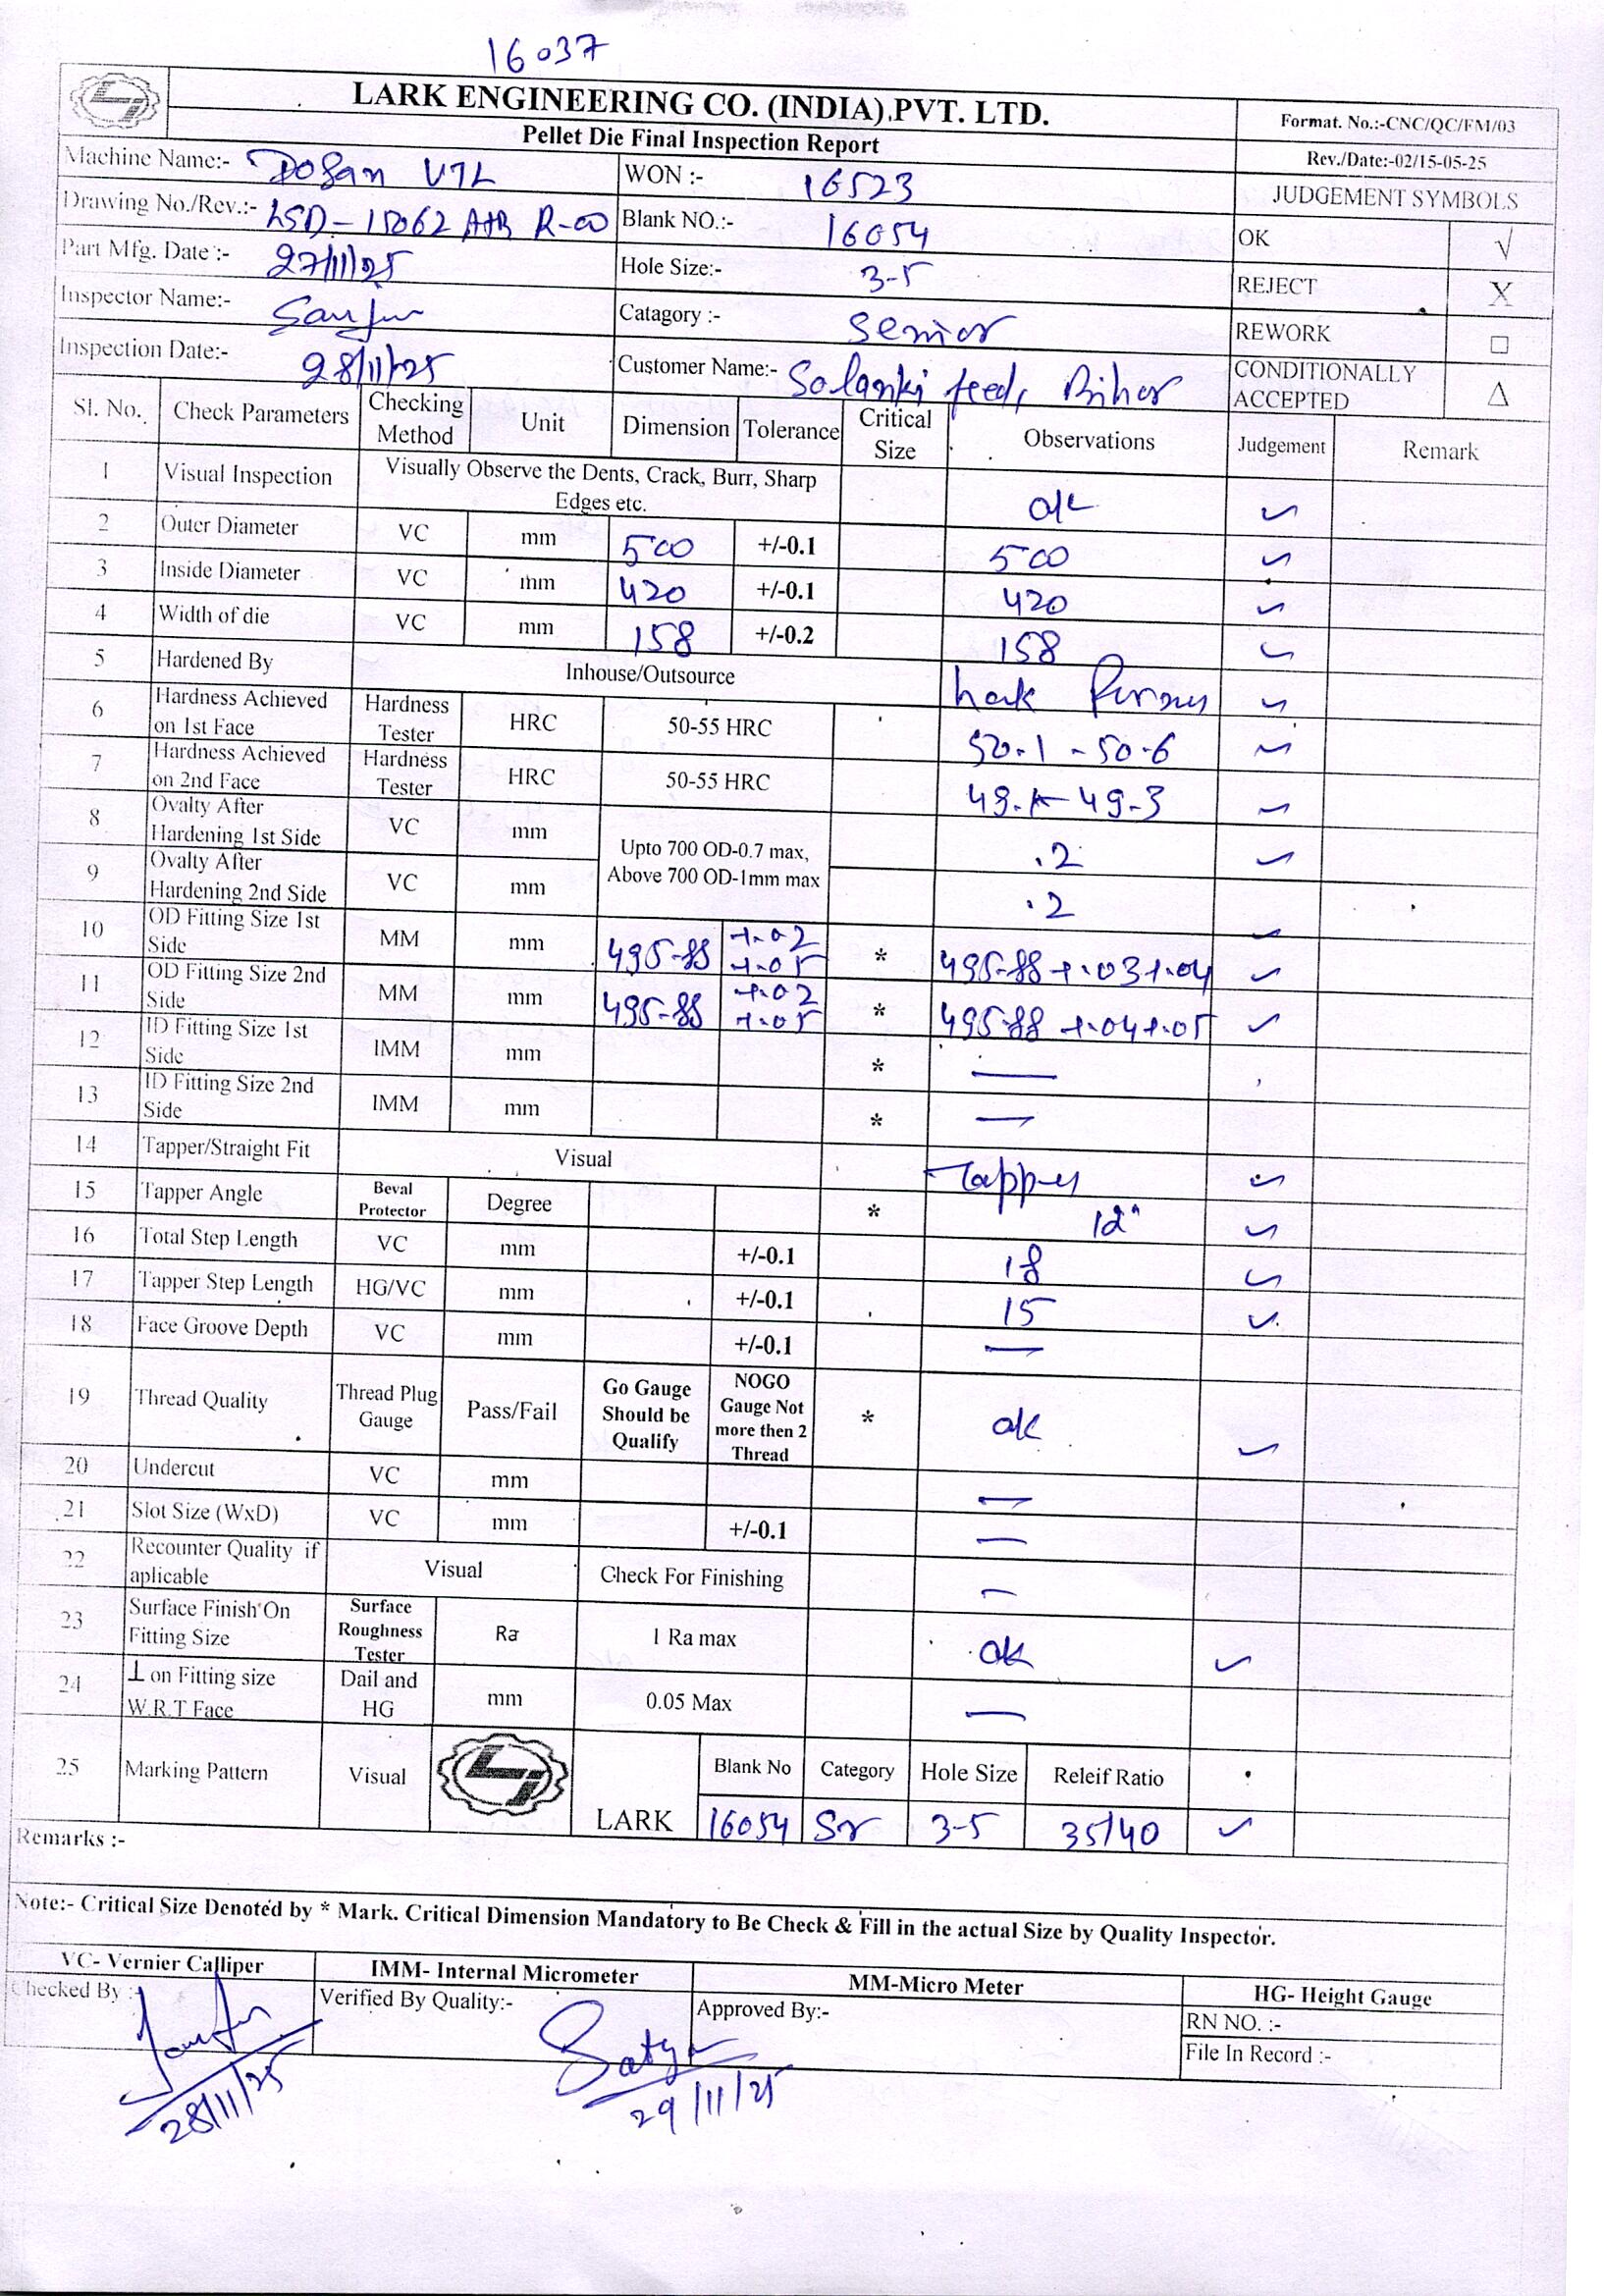 16037
LARK ENGINEERING CO. (INDIA) PVT. LTD.
Format. No.:-CNC/QC/FM/03
Pellet Die Final Inspection Report
Rev./Date:-02/15-05-25
Machine Name:- Dosan VTL WON :- 16523 JUDGEMENT SYMBOLS
Drawing No./Rev.:- LSD-15062 A+B R-00 Blank NO.:- 16054 OK √
Part Mfg. Date :- 27/11/25 Hole Size:- 3-5 REJECT X
Inspector Name:- Catagory :- Senior REWORK □
Inspection Date:- 28/11/25 Customer Name:- Solanki feed, Bihar CONDITIONALLY ACCEPTED Δ
Sl. No. Check Parameters Checking Method Unit Dimension Tolerance Critical Size Observations Judgement Remark
1 Visual Inspection Visually Observe the Dents, Crack, Burr, Sharp Edges etc. ok ✓
2 Outer Diameter VC mm 500 +/-0.1 500 ✓
3 Inside Diameter VC mm 420 +/-0.1 420 ✓
4 Width of die VC mm 158 +/-0.2 158 ✓
5 Hardened By Inhouse/Outsource Lark ✓
6 Hardness Achieved on 1st Face Hardness Tester HRC 50-55 HRC 50.1 - 50.6 ✓
7 Hardness Achieved on 2nd Face Hardness Tester HRC 50-55 HRC 49-3 ✓
8 Ovalty After Hardening 1st Side VC mm Upto 700 OD-0.7 max, Above 700 OD-1mm max .2 ✓
9 Ovalty After Hardening 2nd Side VC mm .2 ✓
10 OD Fitting Size 1st Side MM mm 495-88 +.02 +.05 * 495-88 +.03+.04 ✓
11 OD Fitting Size 2nd Side MM mm 495-88 +.02 +.05 * 495-88 +.04+.05 ✓
12 ID Fitting Size 1st Side IMM mm * —
13 ID Fitting Size 2nd Side IMM mm * —
14 Tapper/Straight Fit Visual Tapper ✓
15 Tapper Angle Beval Protector Degree * 12° ✓
16 Total Step Length VC mm +/-0.1 18 ✓
17 Tapper Step Length HG/VC mm +/-0.1 15 ✓
18 Face Groove Depth VC mm +/-0.1 —
19 Thread Quality Thread Plug Gauge Pass/Fail Go Gauge Should be Qualify NOGO Gauge Not more then 2 Thread * ok ✓
20 Undercut VC mm —
21 Slot Size (WxD) VC mm +/-0.1 —
22 Recounter Quality if aplicable Visual Check For Finishing —
23 Surface Finish On Fitting Size Surface Roughness Tester Ra 1 Ra max ok ✓
24 ⊥ on Fitting size W.R.T Face Dail and HG mm 0.05 Max —
25 Marking Pattern Visual LARK Blank No Category Hole Size Releif Ratio
16054 Sr 3-5 35/40 ✓
Remarks :-
Note:- Critical Size Denoted by * Mark. Critical Dimension Mandatory to Be Check & Fill in the actual Size by Quality Inspector.
VC- Vernier Calliper IMM- Internal Micrometer MM-Micro Meter HG- Height Gauge
Checked By :- Verified By Quality:- Approved By:- RN NO. :-
File In Record :-
Satya
28/11/25 29/11/25